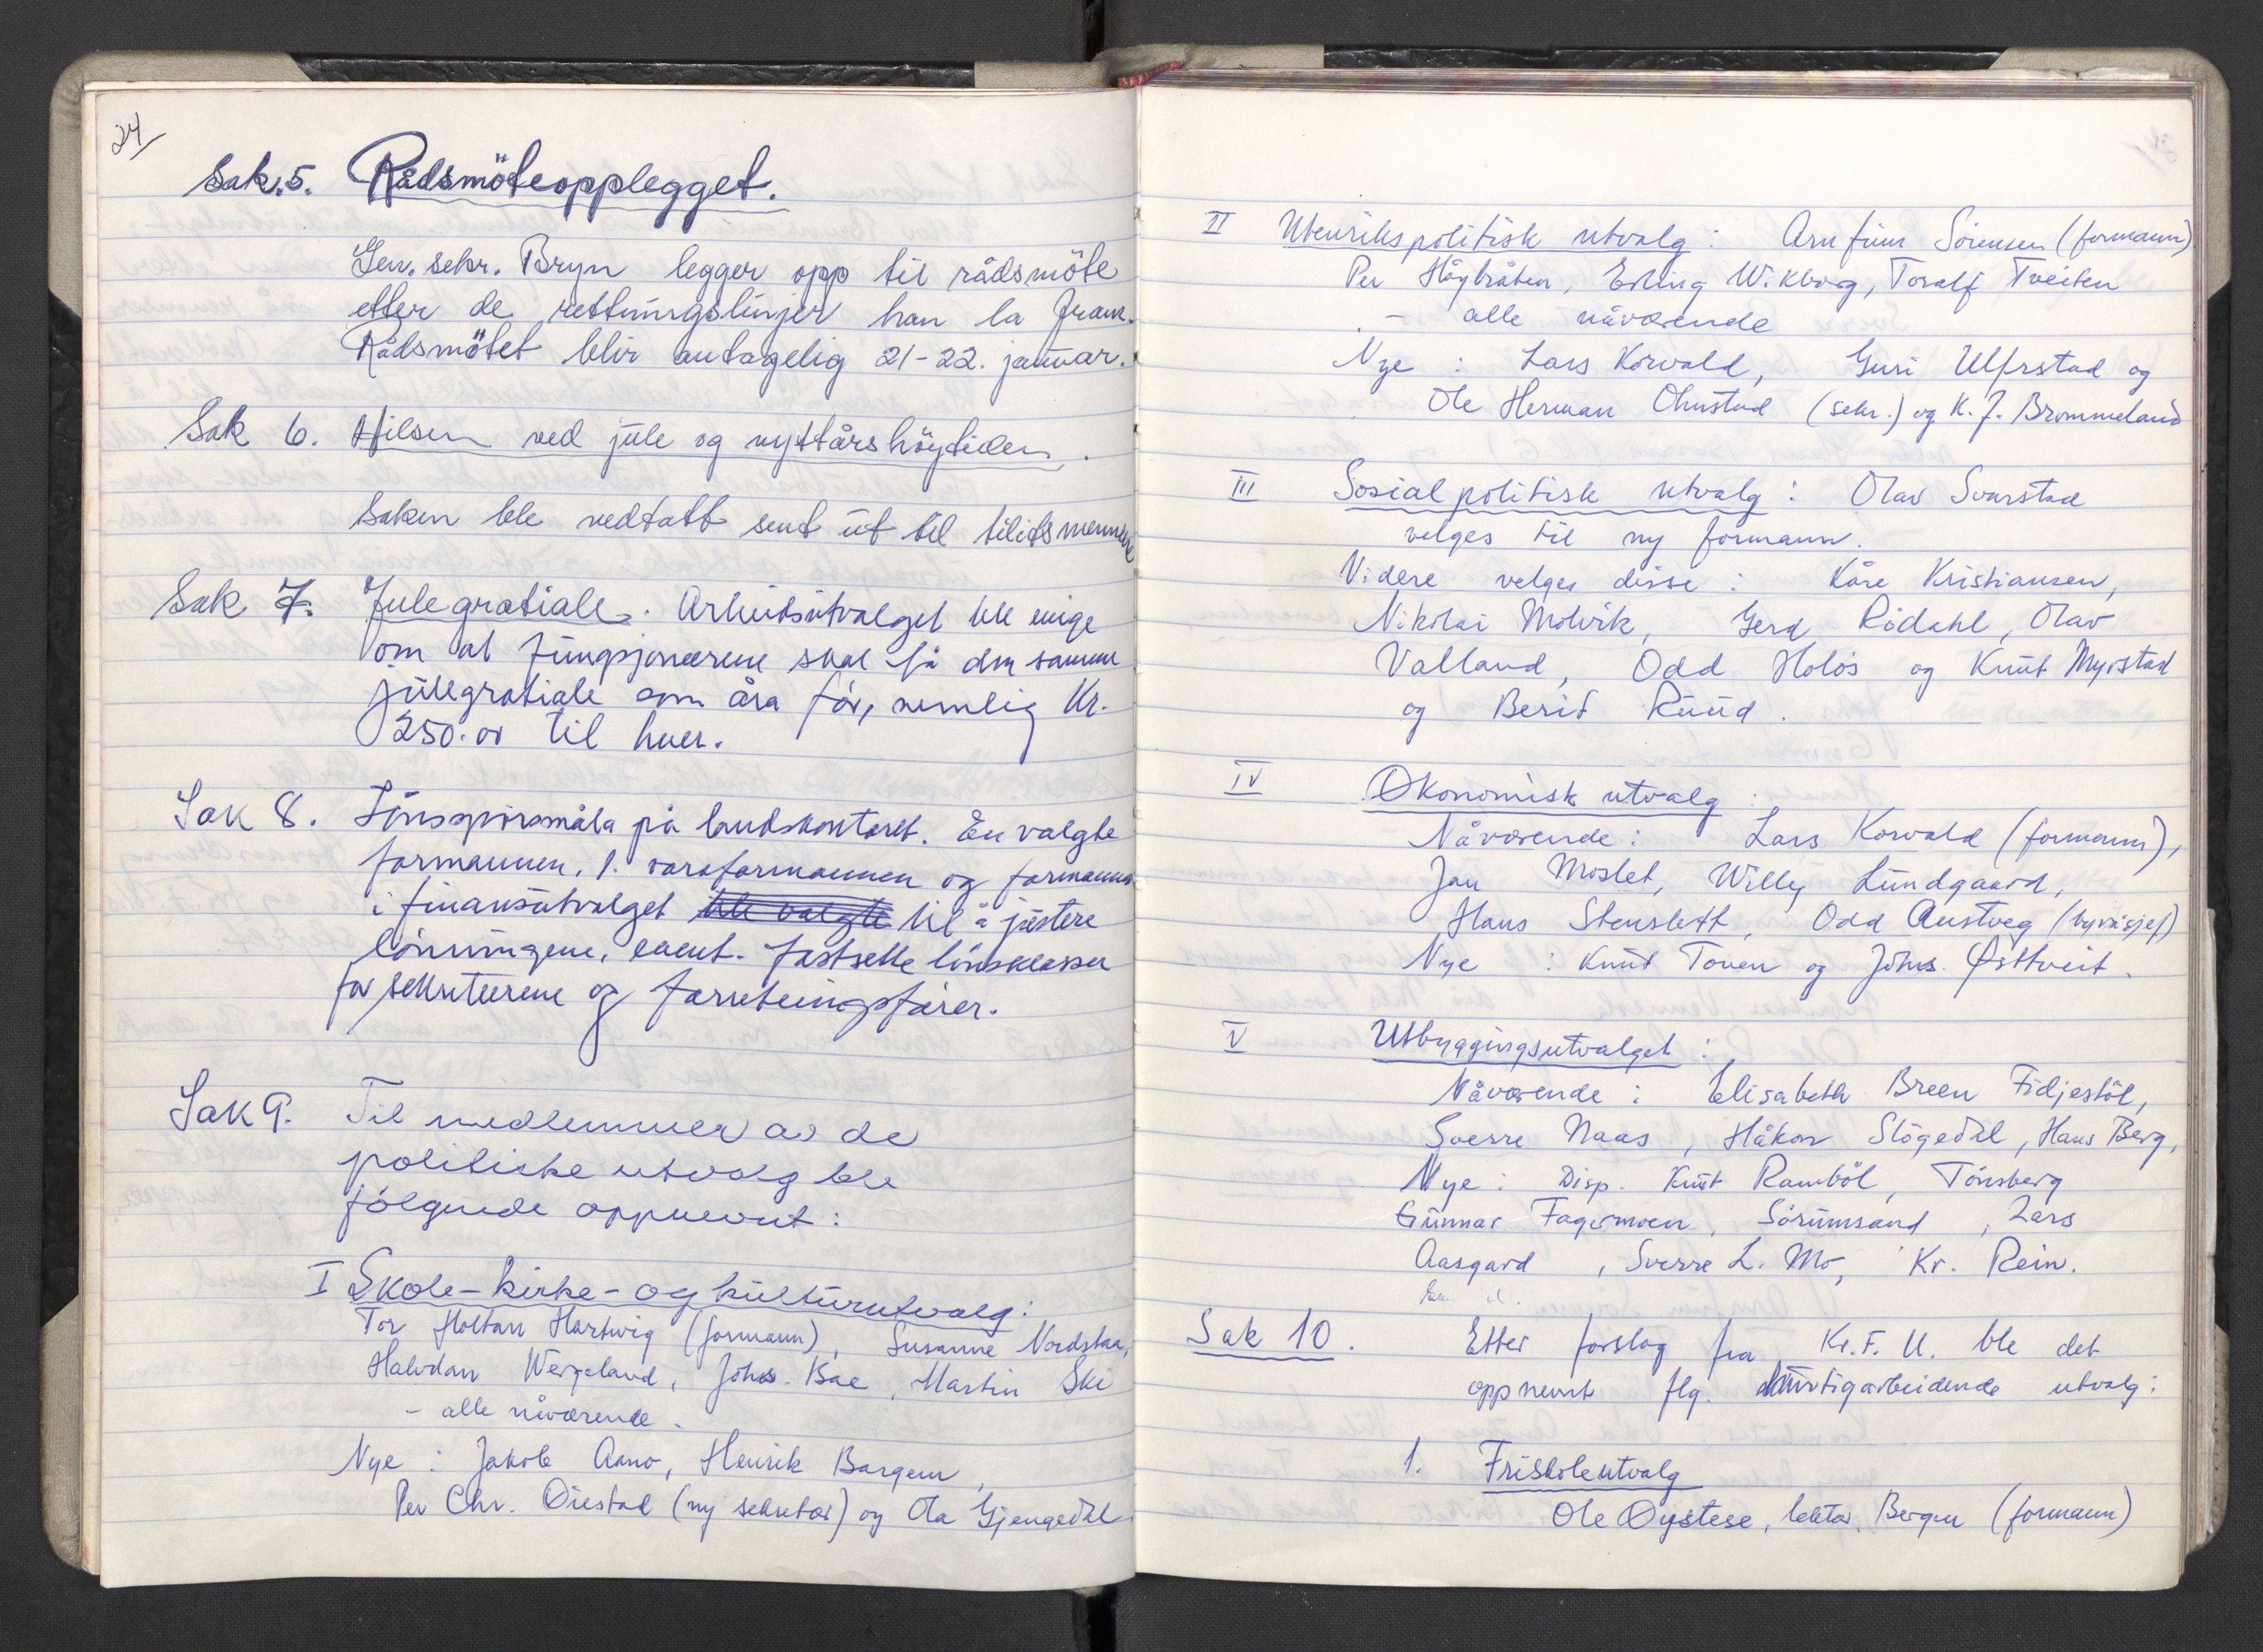 24
Sak. 5. Rådsmöteopplegget.
Gen. sekr. Bryn legger opp til rådsmöte
etter de rettningslinjer han la fram.
Rådsmötet blir antagelig 21-22. januar.
Sak 6. Hilsen ved jule og nyttårshöytiden.
Saken ble vedtatt sent ut til tilitsmennene
Sak 7. Julegratiale. Arbeidsutvalget ble enige
om at fungsjonærene skal få den samme
julegratiale som åra för, nemlig kr.
250.00 til hver.
Sak 8. Lönsspörsmåla på landskontoret. En valgte
formannen, 1. varaformannen og formannen
i finansutvalget ble valgte til å justere
lönningene, event. fastsette lönsklasser
for sekretærene og forretningsförer.
Sak 9. Til medlemmer av de
politiske utvalg ble
fölgende oppnevnt:
I Skole-kirke- og kulturutvalg:
Tor Holtan Hartwig (formann), Susanne Nordstaa,
Halvdan Wergeland, Johs. Bae, Martin Ski
- alle nåværende.
Nye : Jakob Aano, Henrik Bargem,
Per Chr. Öiestad (ny sekretær) og Ola Gjengedal
II Utenrikspolitisk utvalg : Arnfinn Sörensen (formann)
Per Höybråten, Erling Wikborg, Toralf Tveiten
- alle nåværende
Nye : Lars Korvald, Guri Ulfrstad og
Ole Herman Ohnstad (sekr.) og K. J. Brommeland
III Sosialpolitisk utvalg : Olav Svarstad
velges til ny formann.
Videre velges disse : Kåre Kristiansen,
Nikolai Molvik, Gerd Rödahl, Olav
Valland, Odd Holös og Knut Myrstad
og Berit Ruud.
IV Økonomisk utvalg :
Nåværende : Lars Korvald (formann),
Jan Moslet, Willy Lundgaard,
Hans Stenslett, Odd Austveg (byråsjef)
Nye : Knut Toven og Johs. Østtveit.
V Utbyggingsutvalget :
Nåværende : Elisabeth Breen Fidjestöl,
Sverre Naas, Håkon Slögedal, Hans Berg,
Nye : Disp. Knut Ramböl, Tönsberg
Gunnar Fagermoen, Sörumsand, Lars
Aasgard, Sverre L. Mo, Kr. Rein.
Sak 10. Etter forslag fra Kr.F.U. ble det
oppnevnt flg. hurtigarbeidende utvalg :
1. Friskoleutvalg
Ole Øystese, lektor, Bergen (formann)